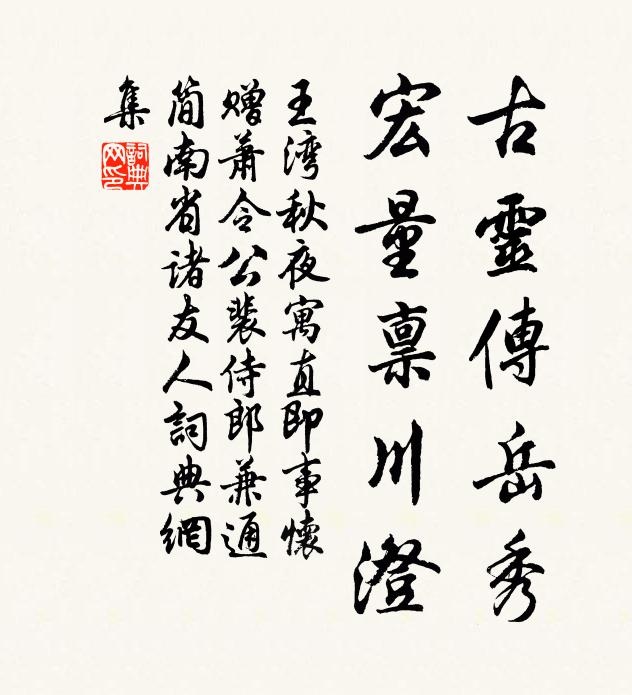 古靈傳岳秀
宏量稟川澄
王湾秋夜寓直即事懷
贈蕭令公裴侍郎兼通
简南省诸友人詞典網
集
詞典网印